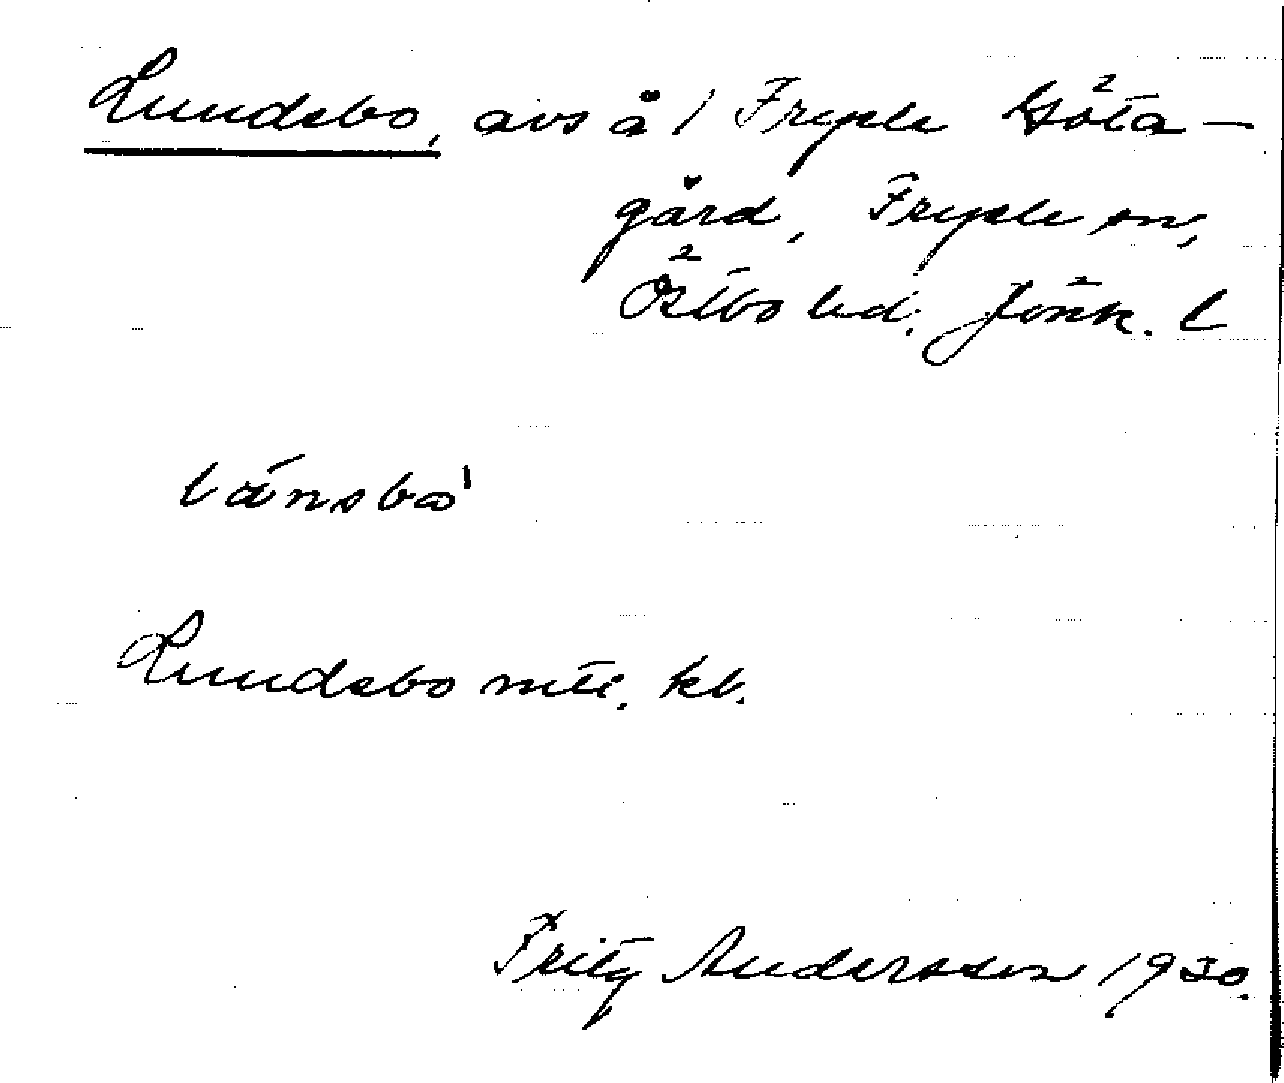 Lundsbo, avs å 1 Fryele Göta-
gård, Fryele sn,
Östbo hd. Jönk. l
lånsbo'
Lundsbo mtl. kb.
Fritz Andersson 1930.